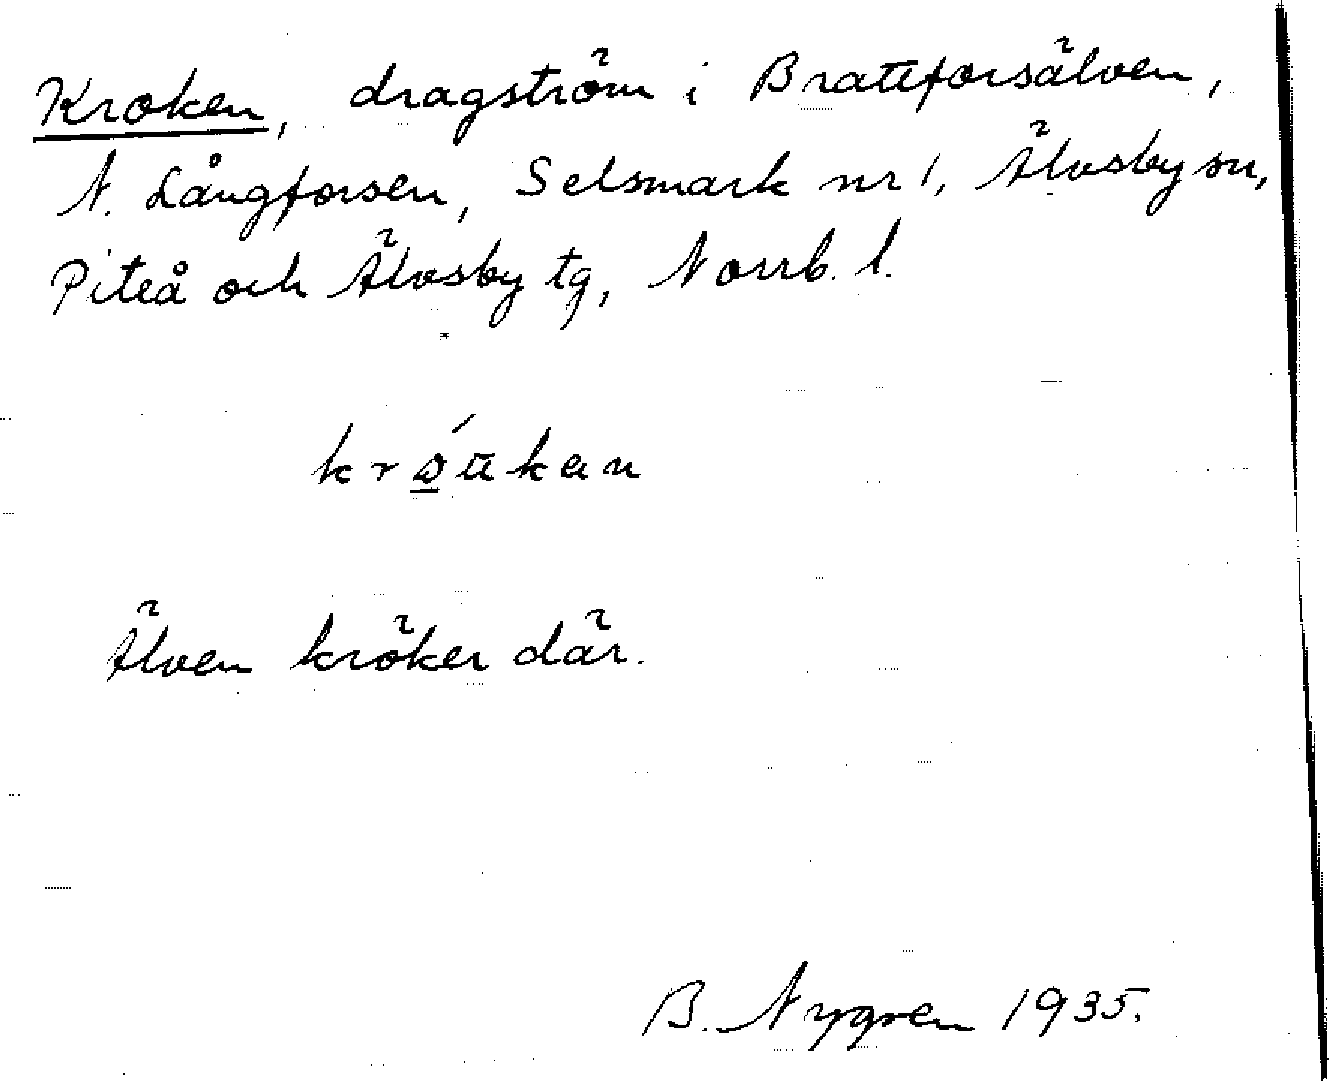 Kroken, dragström i Brattforsälven,
N. Långforsen, Selsmark nr 1, Älvsby sn,
Piteå och Älvsby tg, Norrb. l.
Älven kröker där.
B. Nygren 1935.